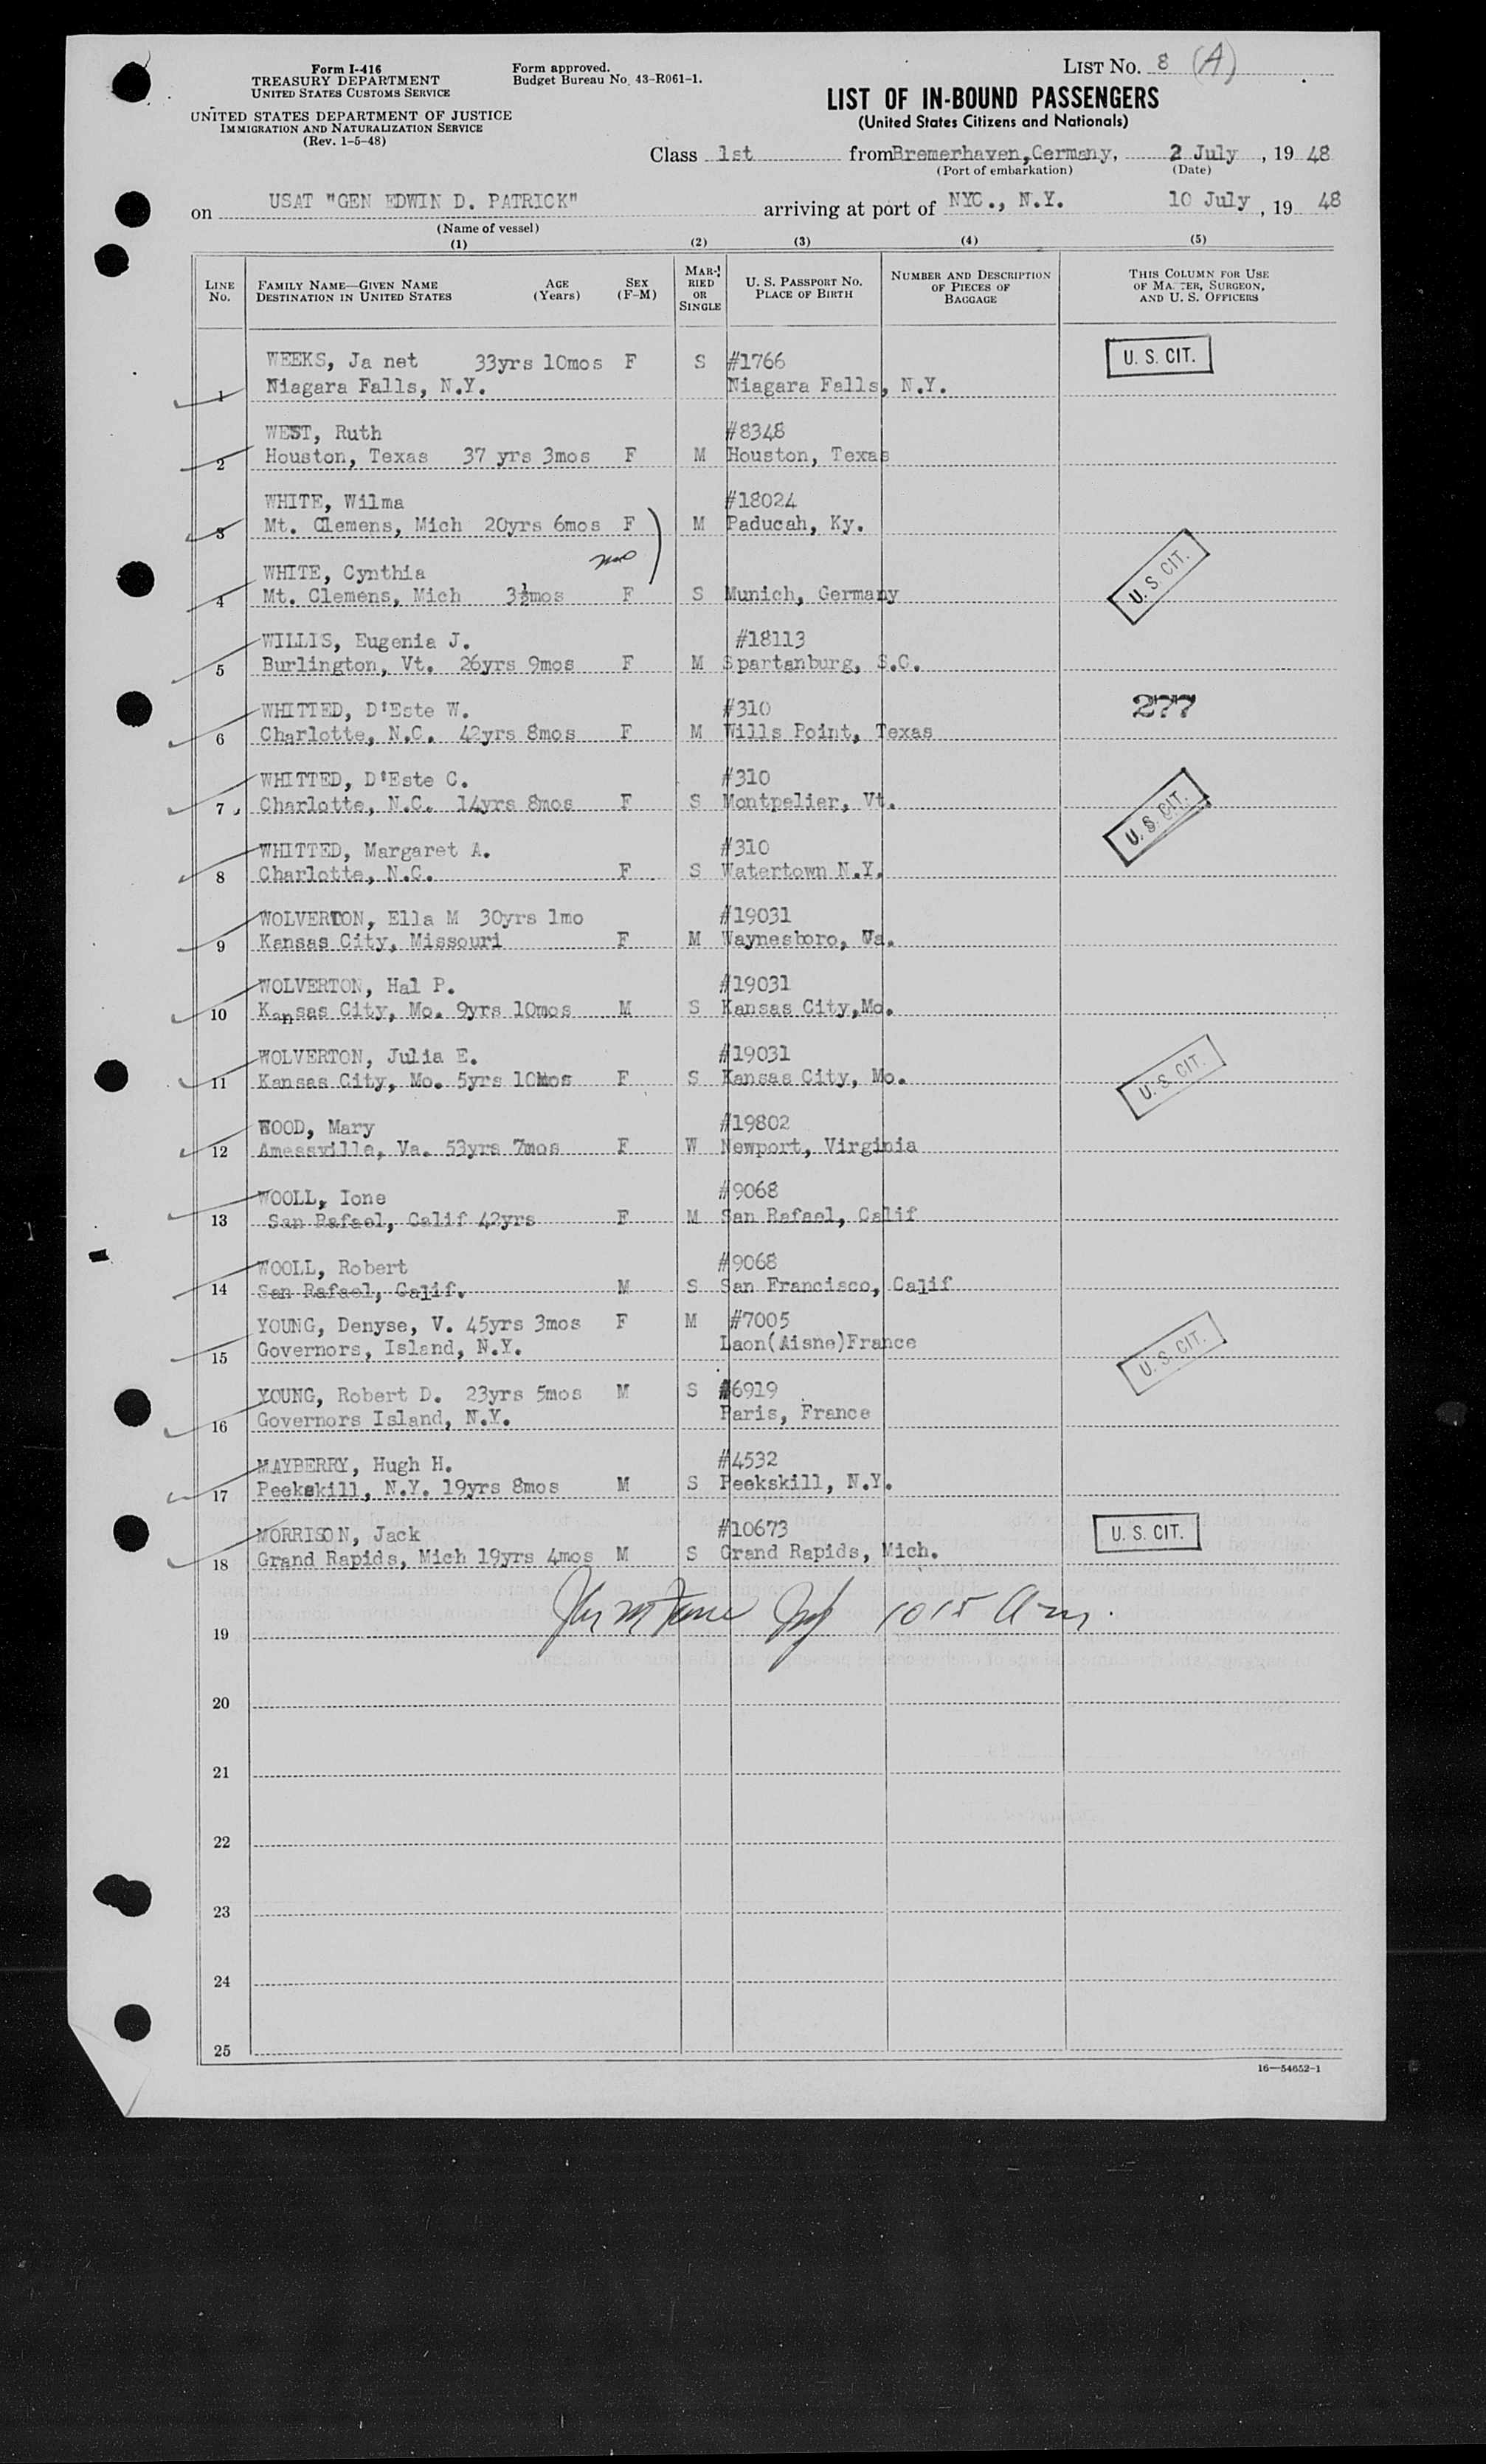 Form I-416
TREASURY DEPARTMENT
UNITED STATES CUSTOMS SERVICE
UNITED STATES DEPARTMENT OF JUSTICE
IMMIGRATION AND NATURALIZATION SERVICE
(Rev. 1-5-48)
Form approved.
Budget Bureau No. 43-R061-1.
LIST NO. 8 (A)
LIST OF IN-BOUND PASSENGERS
(United States Citizens and Nationals)
Class 1st from Bremerhaven, Germany, 2 July, 19 48
(Port of embarkation) (Date)
on USAT "GEN EDWIN D. PATRICK" arriving at port of NYC., N.Y. 10 July, 19 48
(Name of vessel)
(1) (2) (3) (4) (5)
LINE NO. FAMILY NAME—GIVEN NAME DESTINATION IN UNITED STATES AGE (Years) SEX (F-M) MARRIED OR SINGLE U. S. PASSPORT NO. PLACE OF BIRTH NUMBER AND DESCRIPTION OF PIECES OF BAGGAGE THIS COLUMN FOR USE OF MASTER, SURGEON, AND U. S. OFFICERS
WEEKS, Ja net 33yrs 10mos F S #1766 U. S. CIT.
1 Niagara Falls, N.Y. Niagara Falls, N.Y.
WEST, Ruth #8348
2 Houston, Texas 37 yrs 3mos F M Houston, Texas
WHITE, Wilma #18024
3 Mt. Clemens, Mich 20yrs 6mos F M Paducah, Ky.
WHITE, Cynthia U. S. CIT.
4 Mt. Clemens, Mich 3½mos F S Munich, Germany
WILLIS, Eugenia J. #18113
5 Burlington, Vt. 26yrs 9mos F M Spartanburg, S.C.
WHITTED, D'Este W. #310 277
6 Charlotte, N.C. 42yrs 8mos F M Wills Point, Texas
WHITTED, D'Este C. #310
7 Charlotte, N.C. 14yrs 8mos F S Montpelier, Vt. U. S. CIT.
WHITTED, Margaret A. #310
8 Charlotte, N.C. F S Watertown N.Y.
WOLVERTON, Ella M 30yrs 1mo #19031
9 Kansas City, Missouri F M Waynesboro, Va.
WOLVERTON, Hal P. #19031
10 Kansas City, Mo. 9yrs 10mos M S Kansas City,Mo.
WOLVERTON, Julia E. #19031
11 Kansas City, Mo. 5yrs 10mos F S Kansas City, Mo. U. S. CIT.
WOOD, Mary #19802
12 Amessville, Va. 53yrs 7mos F W Newport, Virginia
WOOLL, Ione #9068
13 San Rafael, Calif 42yrs F M San Rafael, Calif
WOOLL, Robert #9068
14 San Rafael, Calif. M S San Francisco, Calif
YOUNG, Denyse, V. 45yrs 3mos F M #7005
15 Governors, Island, N.Y. Laon(Aisne)France U. S. CIT.
YOUNG, Robert D. 23yrs 5mos M S #6919
16 Governors Island, N.Y. Paris, France
MAYBERRY, Hugh H. #4532
17 Peekskill, N.Y. 19yrs 8mos M S Peekskill, N.Y.
MORRISON, Jack #10673 U. S. CIT.
18 Grand Rapids, Mich 19yrs 4mos M S Grand Rapids, Mich.
19 1015 Am.
20
21
22
23
24
25
16—54652-1